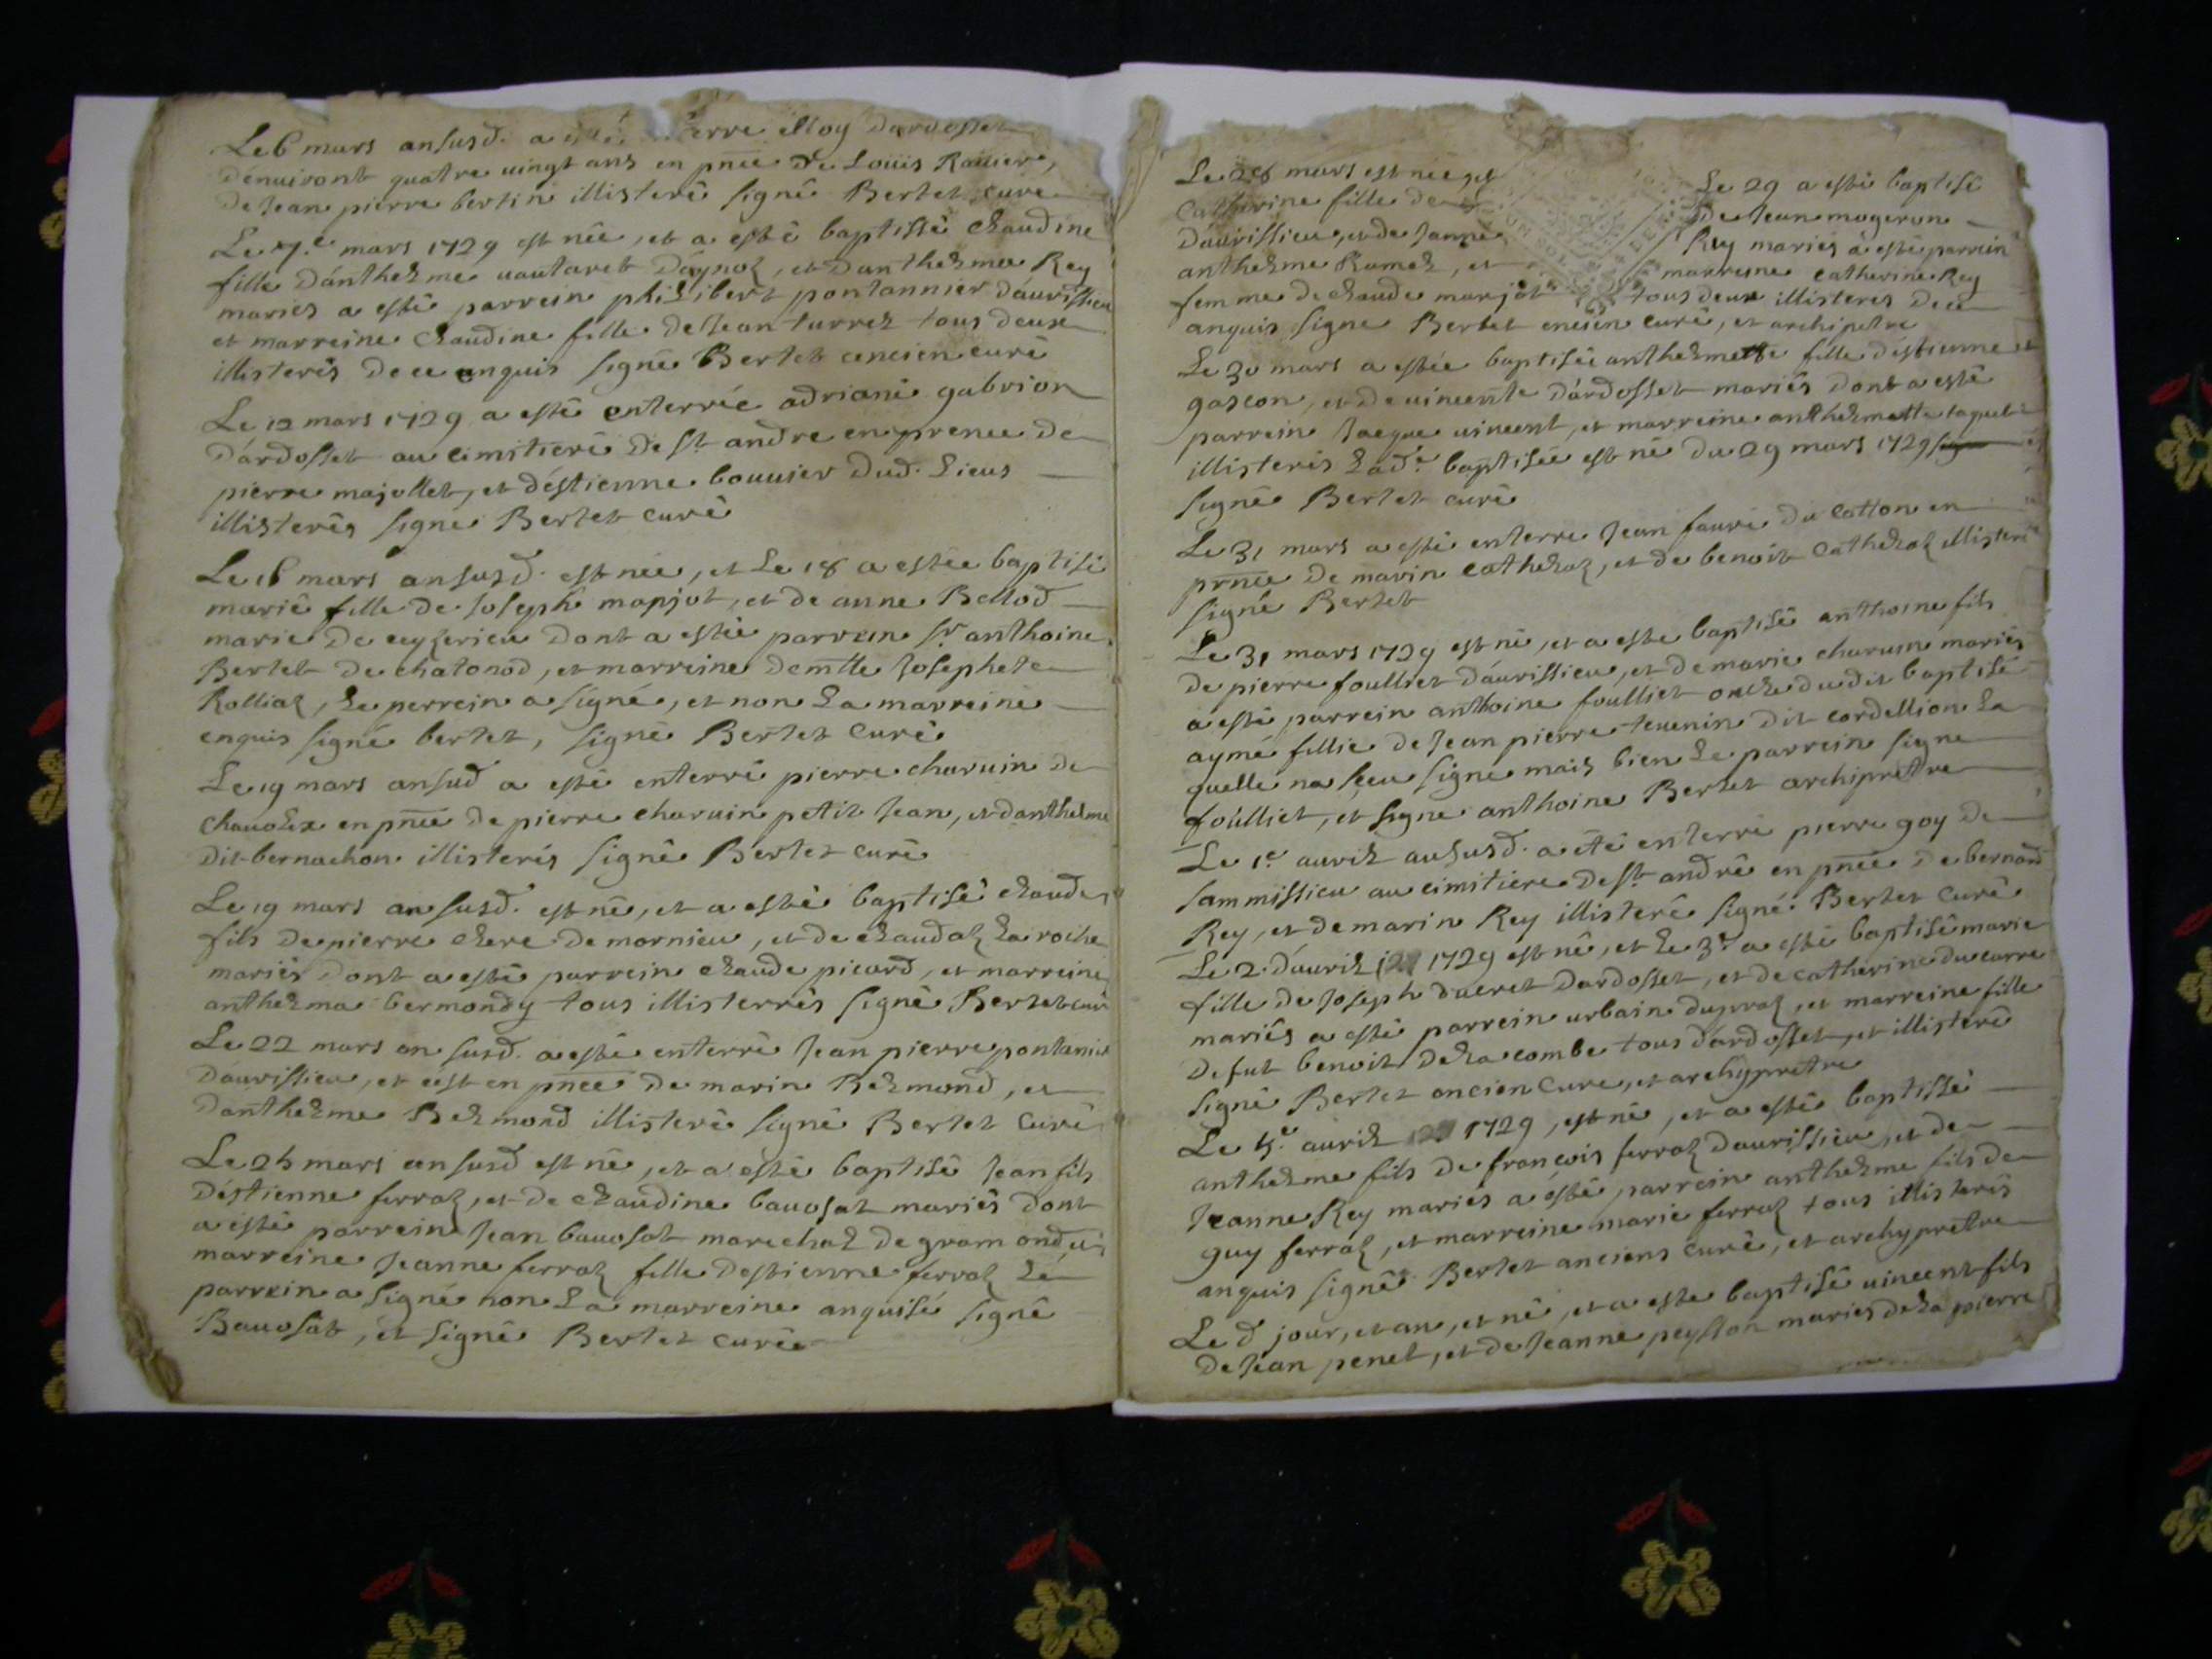 Le 6 mars ansusd. a esté erre Moy dardosset
denuiront quatre uingt ans en pnce de Louis Rauier,
de Jean pierre bertin illisteré signé Bertet curé
Le 7.e mars 1729 est née, et a esté baptissé claudine
fille d'anthelme uautaret d'aynoz, et d'anthelma Rey
mariés a esté parrein philibert pontannier d'aurissieu
et marreine claudine fille de Jean turrel tous deux
illisterés de ce enquis signé Bertet ancien curé
Le 12 mars 1729 a esté enterrée adriane gabrion
d'ardosset au cimitiere de st. andre en prence de
pierre majollet, et d'éstienne bouuier dud. Lieus
illisterés signé Bertet curé
Le 16 mars ansusd. est née, et Le 18 a estée baptisé
marie fille de Joseph mapjot, et de anne Bellod
marie de ceyzerieu dont a estée parrein sr anthoine
Bertet de chatonod, et marreine demlle Josephete
Rolliaz, Le perrein a signé, et non La marreine
enquis signé bertet, signé Bertet curé
Le 19 mars ansud a esté enterré pierre charuin de
chauolex en pnce de pierre charuin petit Jean, et danthelme
dit bernachon illisterés signé Bertet curé
Le 19 mars an susd. est né, et a esté baptisé claude
fils de pierre clere de mornieu, et de claudaz La roche
mariés dont a esté parrein claude picard, et marreine
anthelma bermondy tous illisterrés signé Bertet curé
Le 22 mars an susd. a esté enterré Jean pierre pontanier
daurissieu, et cest en pnce de marin Belmond, et
d'anthelme Belmond illisteré signé Bertet curé
Le 25 mars ansusd est né, et a esté baptisé Jean fils
déstienne ferraz, et de claudine bauosat mariés dont
a esté parrein Jean bauosat marechal de gramond, et
marreine Jeanne ferraz fille destienne ferraz Le
parrein a signé non La marreine anquisé signé
Bauosat, et signé Bertet curé
Le 28 mars est née, et Le 29 a esté baptisé
Catherine fille de de Jean mogeron
Daurissieu, et de Janne Rey mariés a esté parrein
anthelme Ramel, et marreine catherine Rey
femme de claude marjot tous deux illisteres de ce
anquis signé Bertet encien curé, et archipretre
Le 30 mars a estée baptisée anthelmette fille déstienne
gascon, et de uincente d'árdosset mariés dont a esté
parrein Jacque uincent, et marreine anthelmette taquet
illisterés Lad.e baptisée est né du 29 mars 1729
signé Bertet curé
Le 31 mars a esté enterre Jean fauré du Cotton en
prnce de marin catheLaz, et de benoit CatheLaz illisteré
signé Bertet
Le 31 mars 1729 est né, et a esté baptisé anthoine fils
de pierre foulliet d'áurissieu, et de marie charuin mariés
a esté parrein anthoine foulliet oncle dudit baptisé
aymé fillie de Jean pierre teuenin dit cordellion La
quelle na sceu signé mais bien Le parrein signe
foulliet, et signé anthoine Bertet archiprettre
Le 1.e auril ausud. a été enterré pierre goy de
sammissieu au cimitiere de st. andré en pnce de bernard
Rey, et de marin Rey illisteré signé Bertet curé
Le 2. d'auril 1729 est né, et Le 3.e a esté baptisé marie
fille de Joseph ducret Dardosset, et de catherine ducarre
mariés a esté parrein urbain duprraz, et marreine fille
de fut benoit de La combe tous d'árdosset, et illisteré
signé Bertet ancien Curé, et archyprettre
Le 5.e auril 1729, est né, et a esté baptissé
anthelme fils de francois ferraz d'aurissieu, et de
Jeanne Rey mariés a esté parrein anthelme fils de
guy ferraz, et marreine marie ferraz tous illisterés
anquis signé Bertet anciens curé, et archyprettre
Le d jour, et an, et né, et a este baptisé uincent fils
de Jean penet, et de Jeanne peysson mariés de La pierre